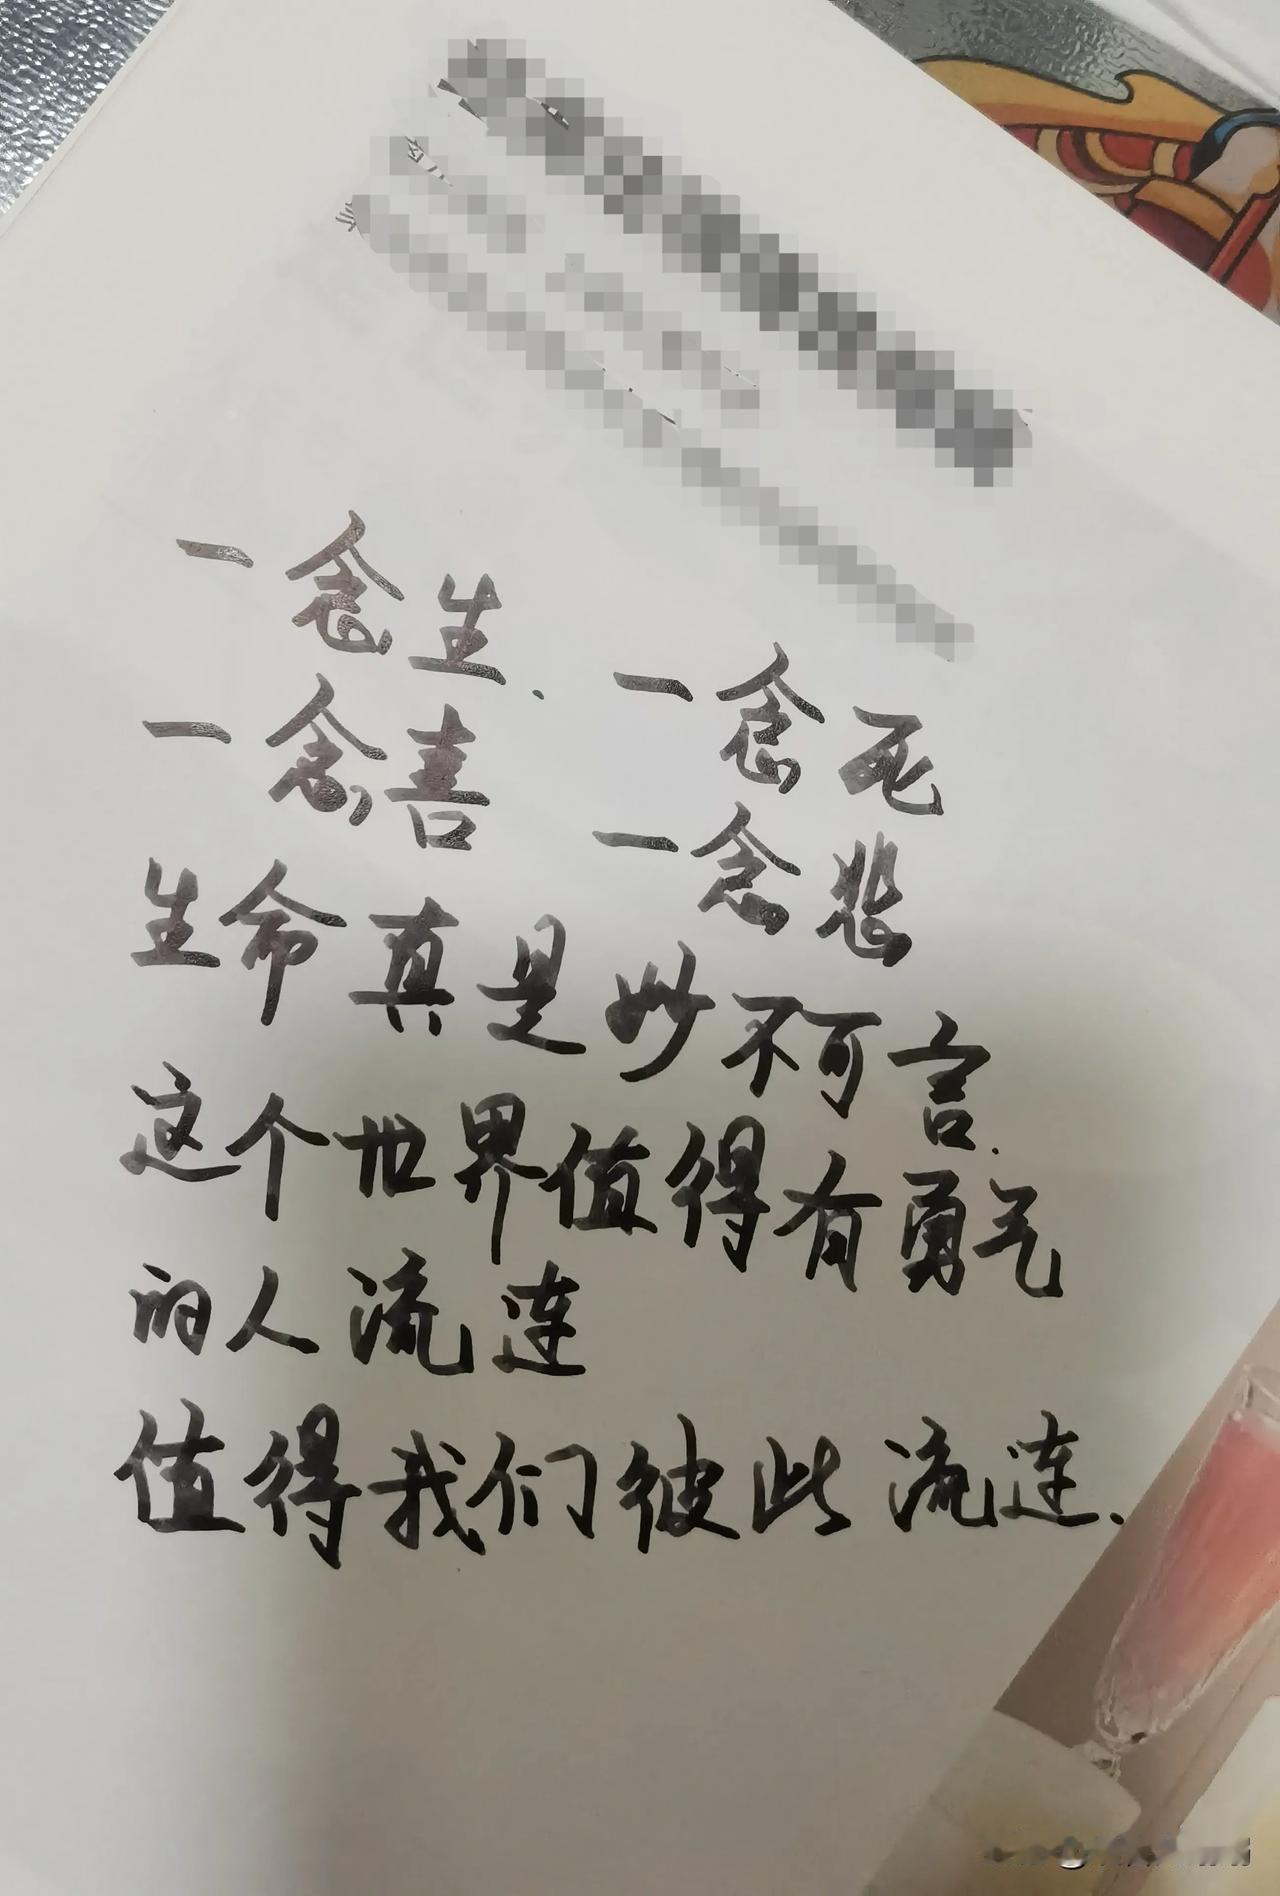 一念生、一念死
一念喜 一念悲
生命真是妙不可言.
这个世界值得有勇气
的人流连
值得我们彼此流连、